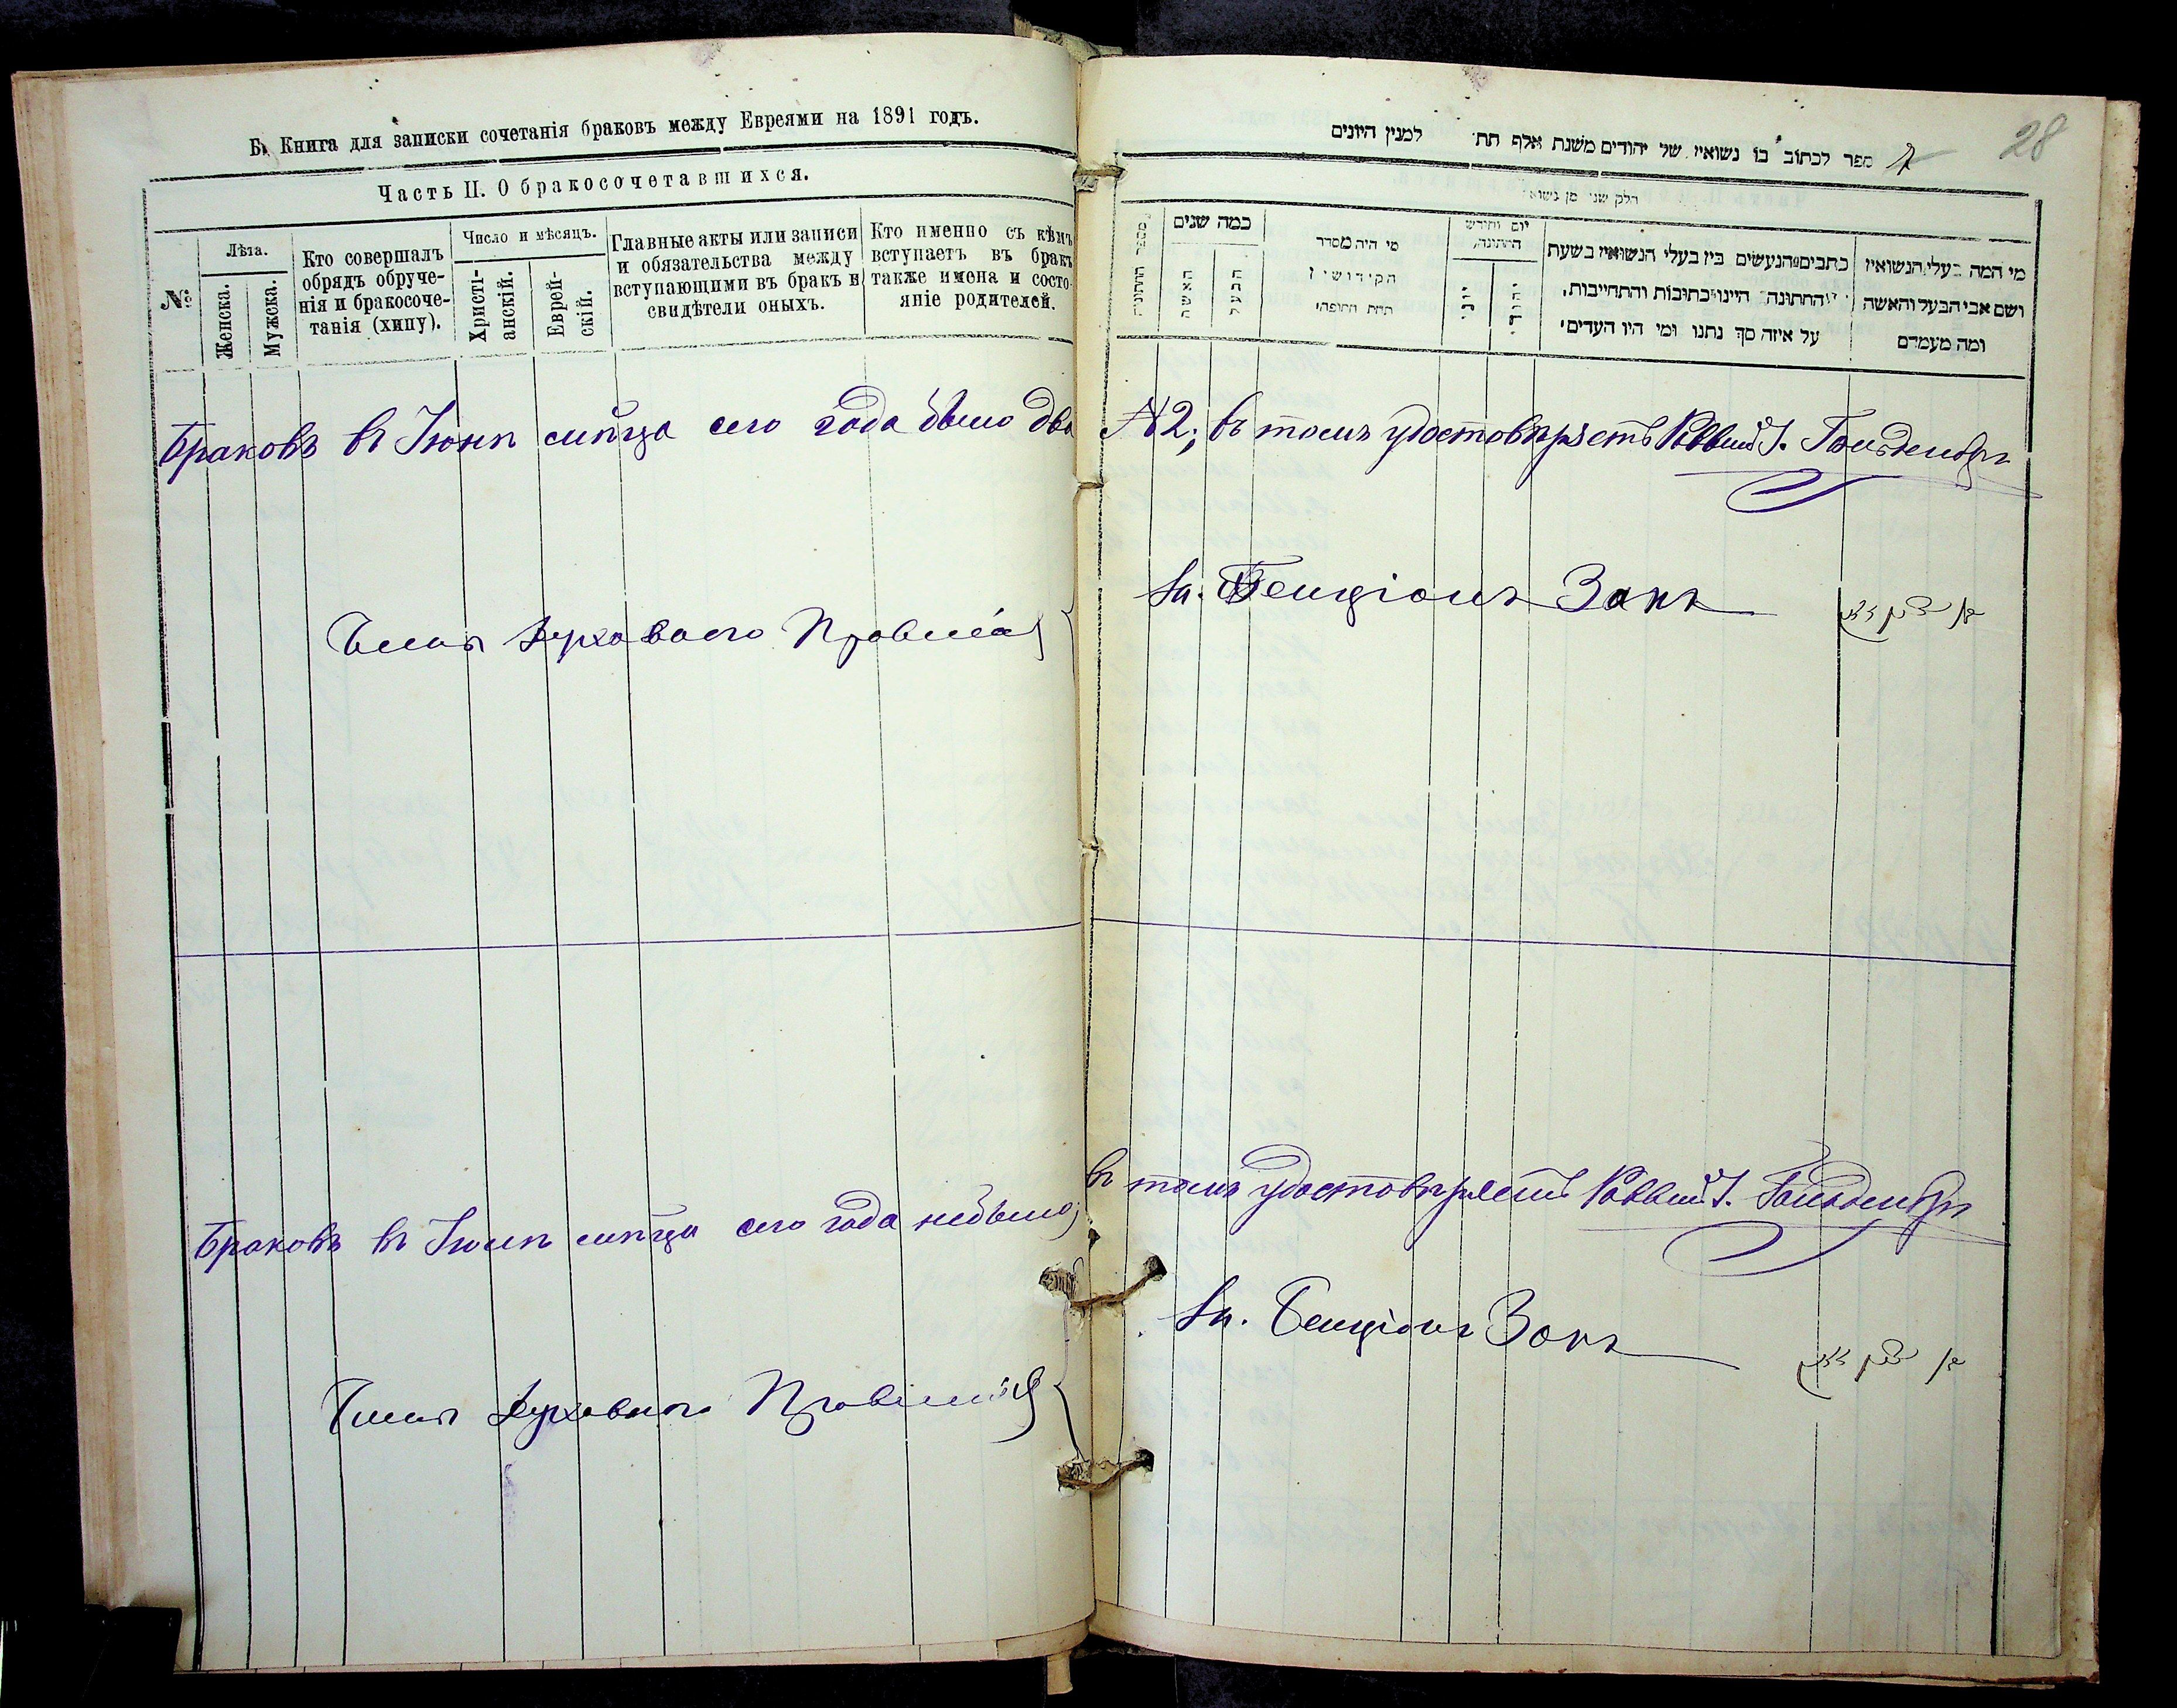 Б. Книга для записки сочетанія браковъ между Евреями на 1891 годъ.
Часть II. О бракосочетавшихся.
№
Лѣта.
Женска.
Мужска.
Кто совершалъ
обрядъ обруче-
нія и бракосоче-
танія (хипу).
Число и мѣсяцъ.
Христі-
анскій.
Еврей-
скій.
Главные акты или записи
и обязательства между
вступающими въ бракъ и
свидѣтели оныхъ.
Кто именно съ кѣмъ
вступаетъ въ бракъ
также имена и состо-
яніе родителей.
Браковъ въ Іюнѣ мѣсяца сего года было два
Члены Духовного Правленія
Браковъ въ Іюлѣ мѣсяца сего года небыло;
Члены Духовного Правленія
28
ספר לכתוב בו נשואין של יהודים משנת אלף תת למנין היונים
חלק שני מן נשואי
מספר החתונה
כמה שנים
האשה
הבעל
מי היה מסדר
הקידושין
תחת החופה
יום וחודש
החתונה
יוני
יהודי
כתבים הנעשים בין בעלי הנשואין בשעת
החתונה היינו כתובות והתחייבות,
על איזה סך נתנו ומי היו העדים
מי המה בעלי הנשואין
ושם אבי הבעל והאשה
ומה מעמדם
№ 2; въ томъ удостовѣряетъ Раввинъ І. Гольденбергъ
Бенціонъ Закъ
въ томъ удостовѣряетъ Раввинъ І. Гольденбергъ
Бенціонъ Закъ